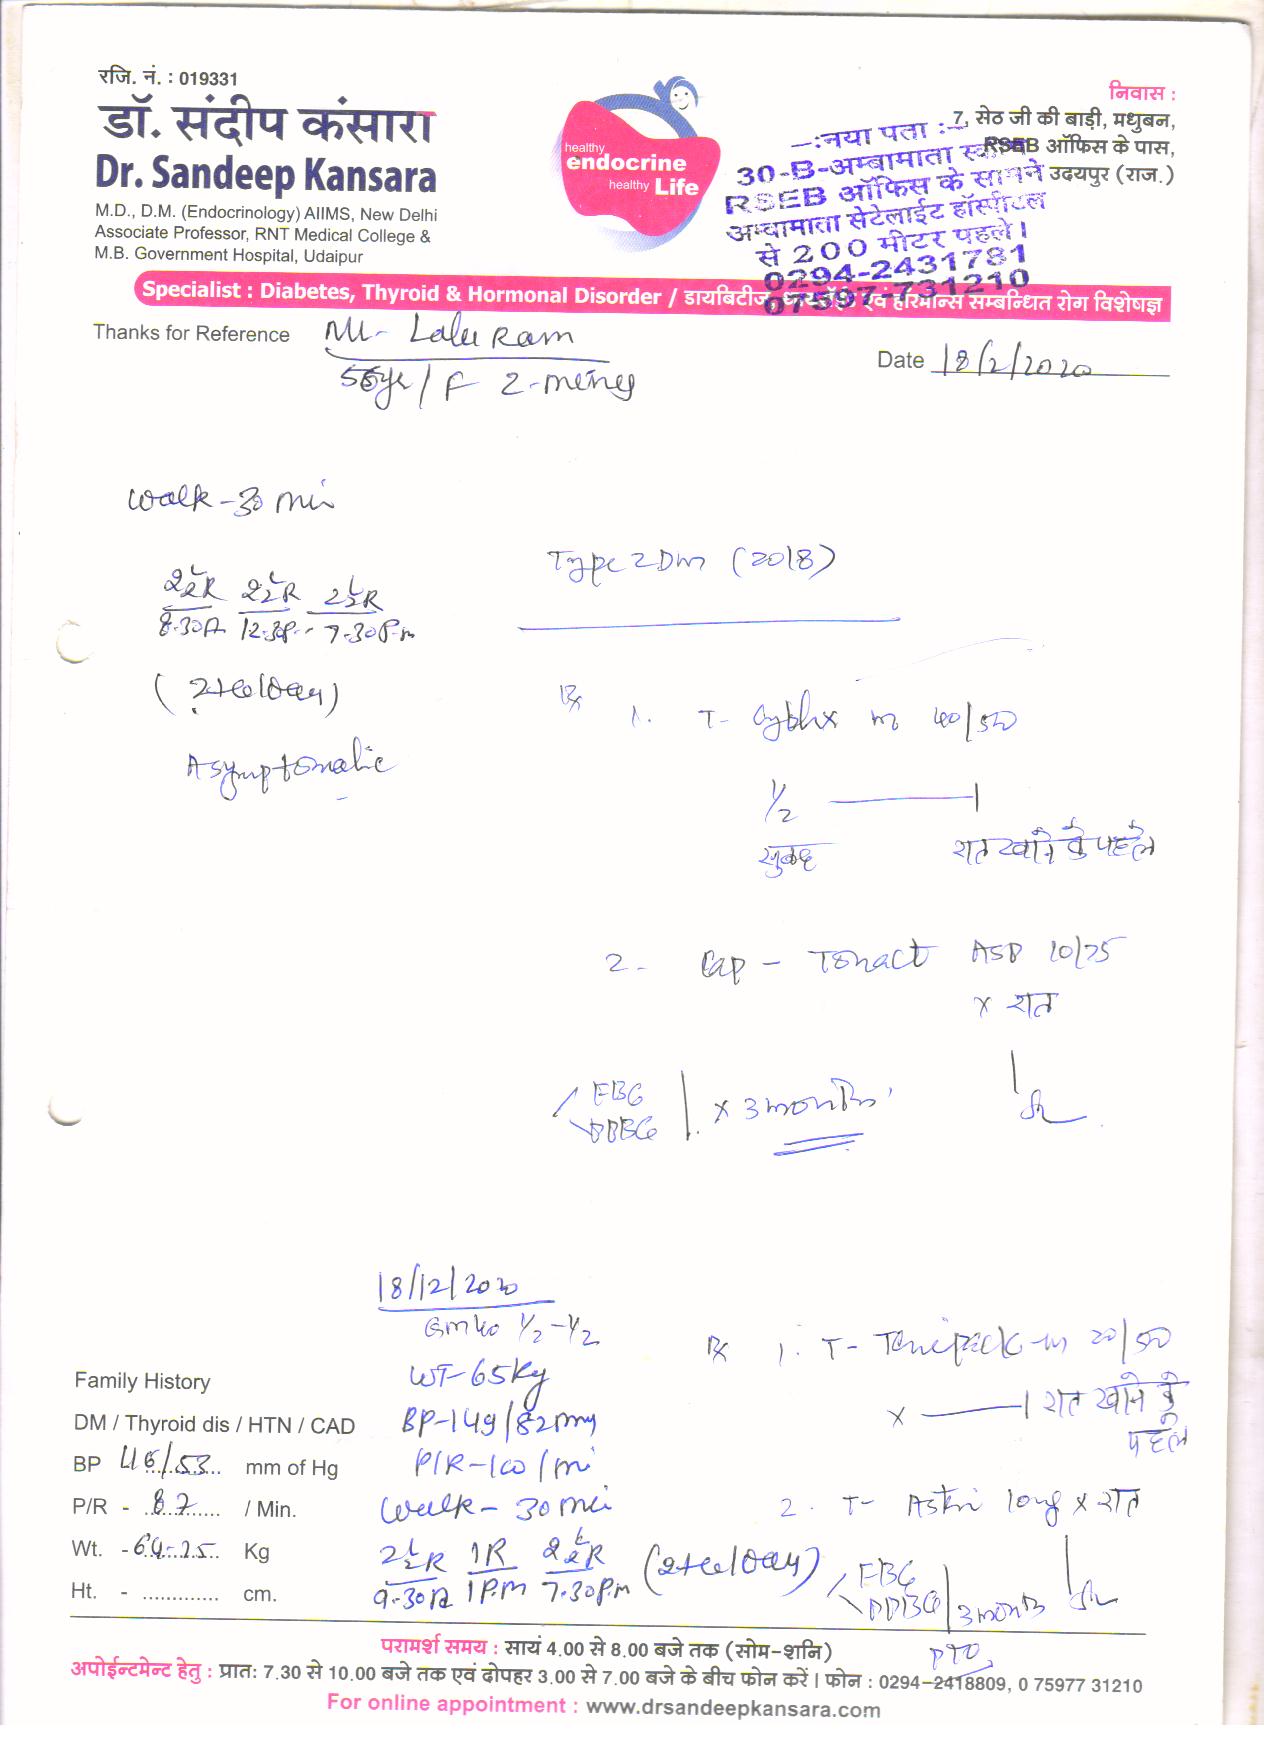 रजि. नं. : 019331
डॉ. संदीप कंसारा
Dr. Sandeep Kansara
M.D., D.M. (Endocrinology) AIIMS, New Delhi
Associate Professor, RNT Medical College &
M.B. Government Hospital, Udaipur
healthy
endocrine
healthy Life
निवास :
7, सेठ जी की बाड़ी, मधुबन,
RSEB ऑफिस के पास,
उदयपुर (राज.)
—:नया पता :—
30-B-अम्बामाता
RSEB ऑफिस के सामने
अम्बामाता सेटेलाईट हॉस्पीटल
से 200 मीटर पहले।
0294-2431781
07597-731210
Specialist : Diabetes, Thyroid & Hormonal Disorder / डायबिटीज, एवं हॉरमोन्स सम्बन्धित रोग विशेषज्ञ
Thanks for Reference Lalu Ram
Date 18/2/2020
Walk - 30 min
Type 2 Dm (2018)
2½R 2½R 2½R
8.30A 12.30P 7.30P.m
(2 tea/day)
Asymptomatic
Rx
1. T- m 40/50
½ ———|
सुबह रात खाने के पहले
2 - Cap - Tonact ASP 10/75
x रात
FBG
PPBG x 3 months
18/12/2020
Gm 40 ½-½
WT-65kg
BP-149/82
P/R-100/mi
Walk - 30 min
2½R 1R 2½R (2 tea/day)
9.30A 1P.m 7.30P.m
Rx 1. T- m 20/50
x ———| रात खाने के
पहले
2. T- long x रात
FBG
PPBG 3 months
PTO
Family History
DM / Thyroid dis / HTN / CAD
BP 116/53 mm of Hg
P/R - 87 / Min.
Wt. - 64.25 Kg
Ht. - ............. cm.
परामर्श समय : सायं 4.00 से 8.00 बजे तक (सोम-शनि)
अपोईन्टमेन्ट हेतु : प्रात: 7.30 से 10.00 बजे तक एवं दोपहर 3.00 से 7.00 बजे के बीच फोन करें। फोन : 0294-2418809, 0 75977 31210
For online appointment : www.drsandeepkansara.com